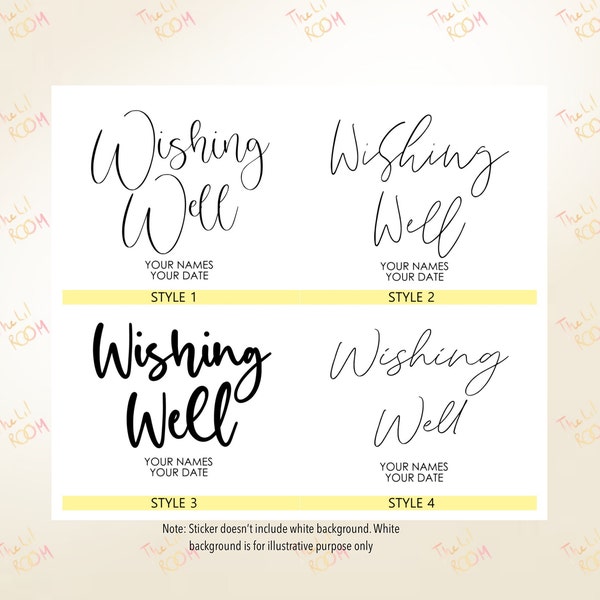 The Lil ROOM
Wishing
Well
YOUR NAMES
YOUR DATE
STYLE 1
Wishing
Well
YOUR NAMES
YOUR DATE
STYLE 2
Wishing
Well
YOUR NAMES
YOUR DATE
STYLE 3
Wishing
Well
YOUR NAMES
YOUR DATE
STYLE 4
Note: Sticker doesn't include white background. White
background is for illustrative purpose only